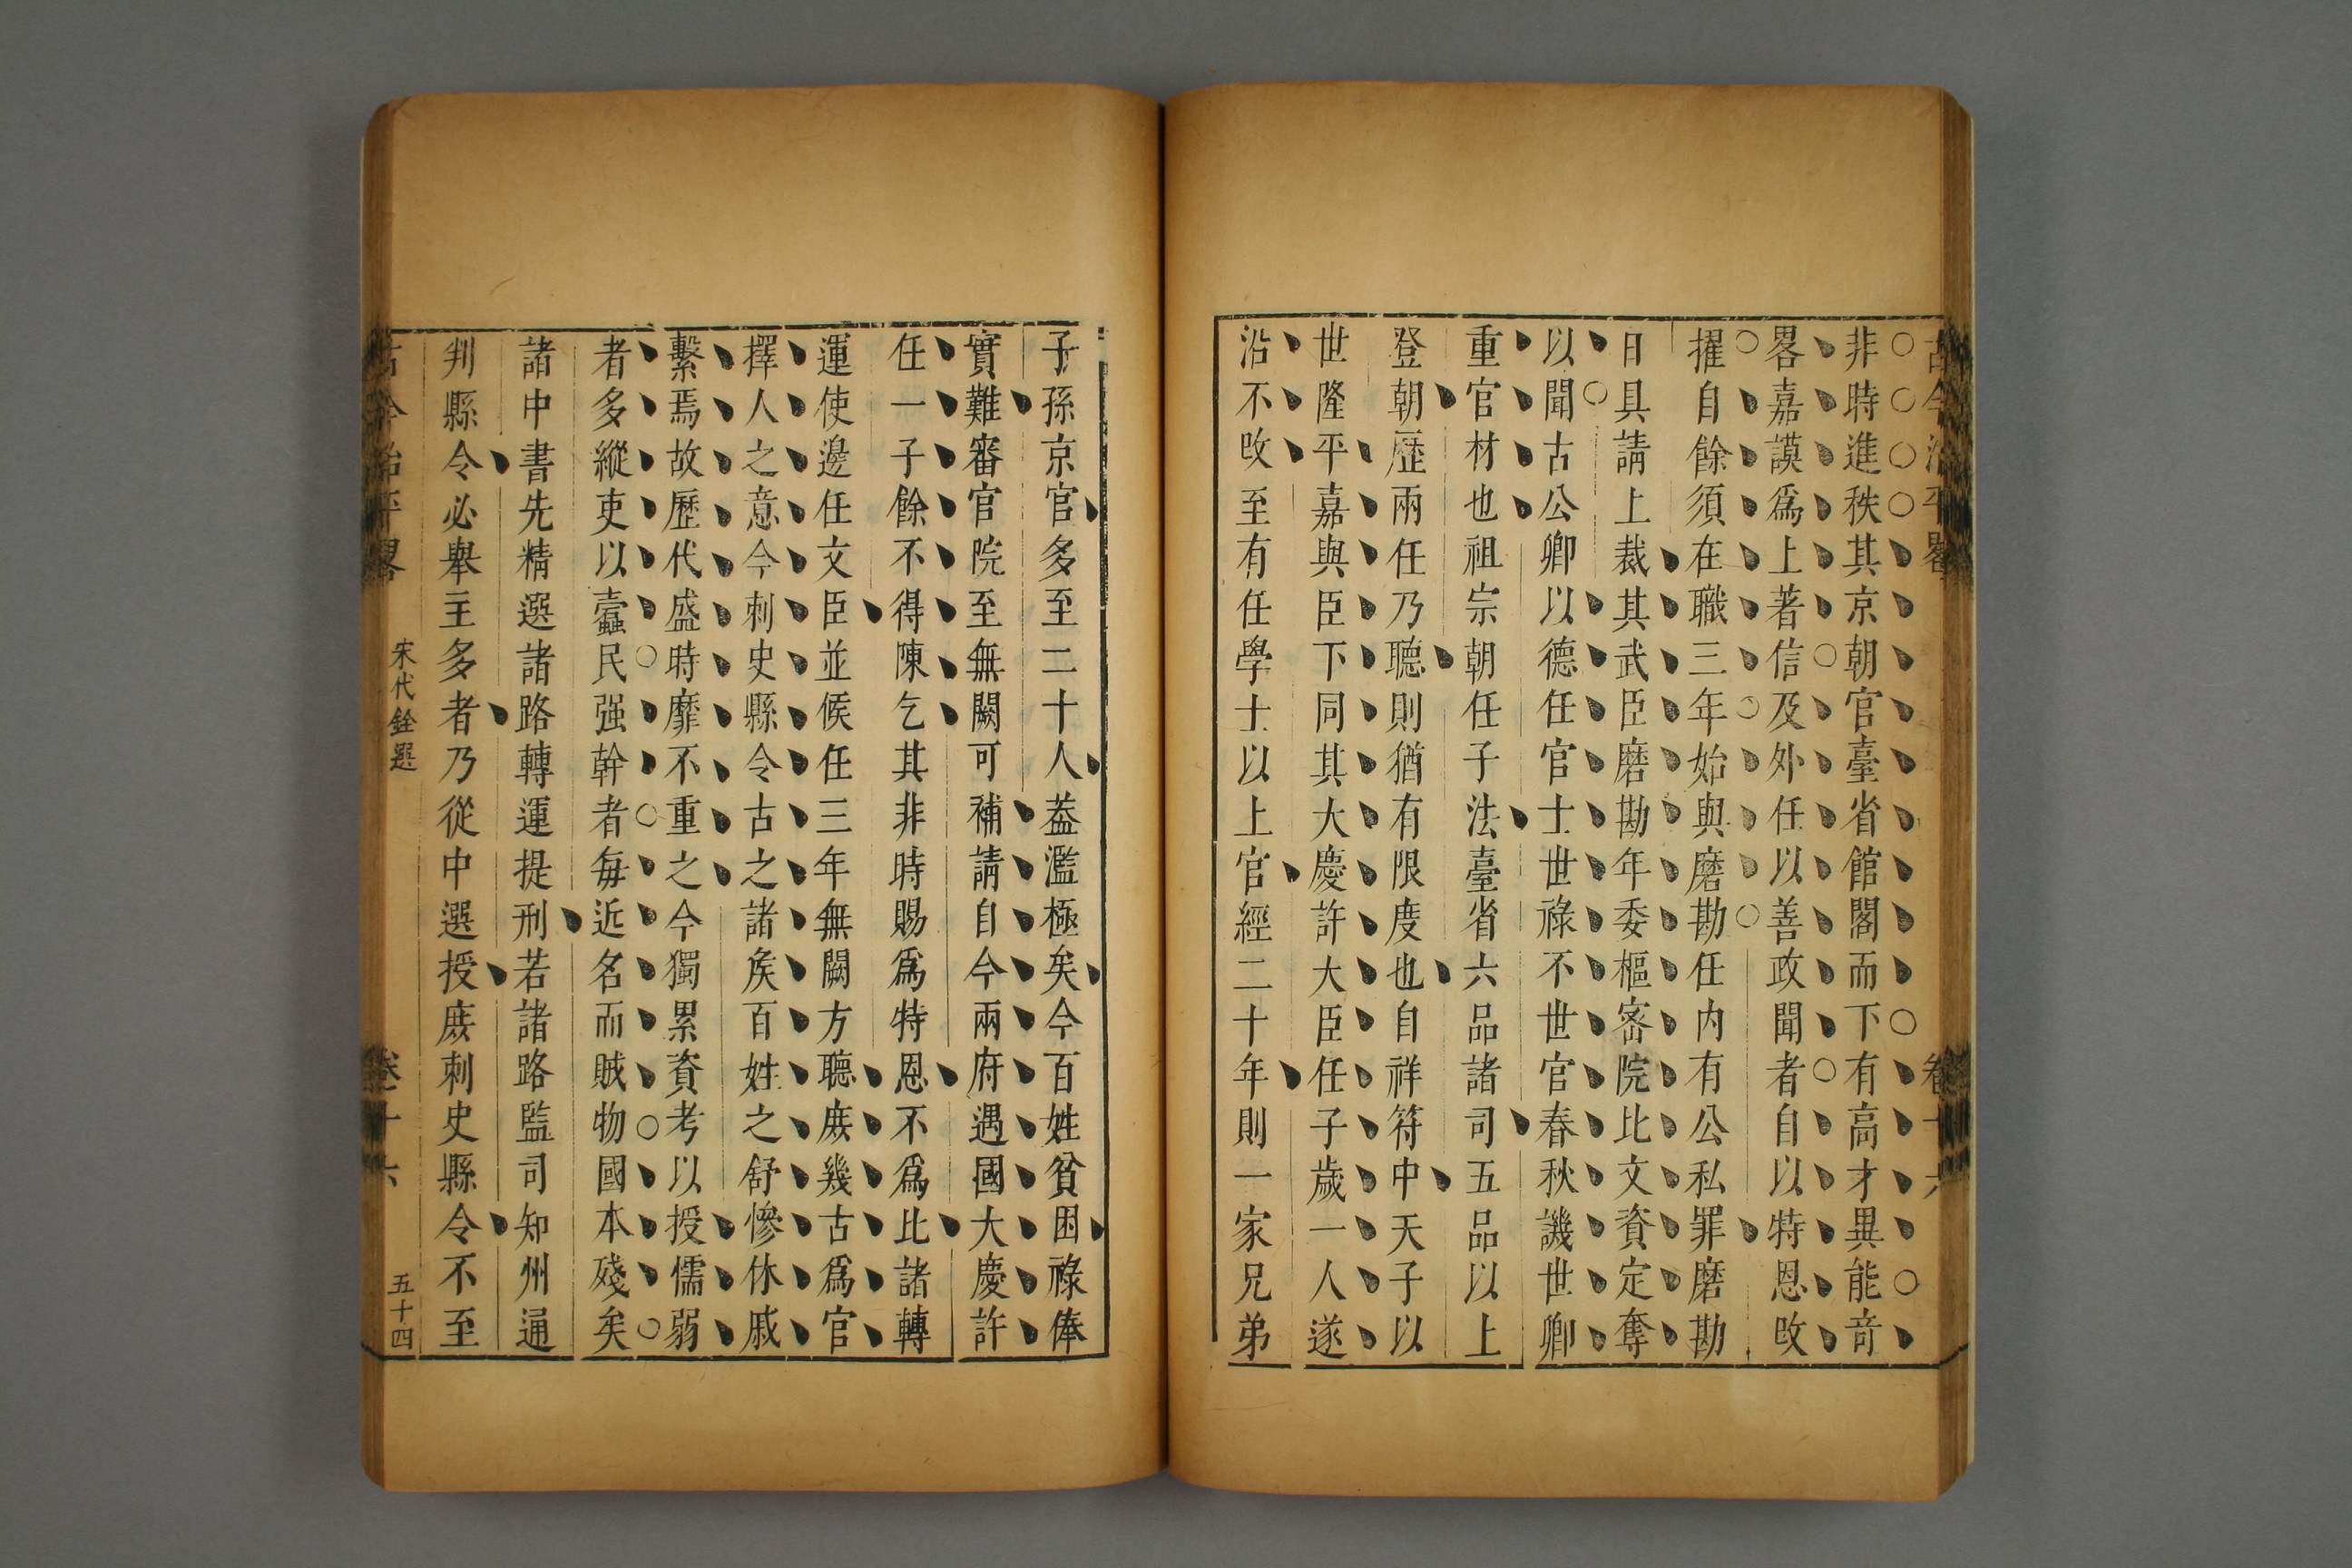 古今治平畧 卷十六
非時進秩其京朝官臺省館閣而下有高才異能竒
畧嘉謨爲上著信及外任以善政聞者自以特恩攺
擢自餘須在職三年始與磨勘任内有公私罪磨勘
日具請上裁其武臣磨勘年委樞宻院比文資定奪
以聞古公卿以德任官士世祿不世官春秋譏世卿
重官材也祖宗朝任子法臺省六品諸司五品以上
登朝歴兩任乃聽則猶有限度也自祥符中天子以
世隆平嘉與臣下同其大慶許大臣任子歲一人遂
沿不攺至有任學士以上官經二十年則一家兄弟
子孫京官多至二十人葢濫極矣今百姓貧困祿俸
實難審官院至無闕可補請自今兩府遇國大慶許
任一子餘不得陳乞其非時賜爲特恩不爲比諸轉
運使邊任文臣並候任三年無闕方聽庻幾古爲官
擇人之意今刺史縣令古之諸矦百姓之舒慘休戚
繫焉故歴代盛時靡不重之今獨累資考以授儒弱
者多縱吏以蠹民强幹者毎近名而賊物國本殘矣
諸中書先精選諸路轉運提刑若諸路監司知州通
判縣令必舉主多者乃從中選授庻刺史縣令不至
古今治平畧 宋代銓選 卷十六 五十四